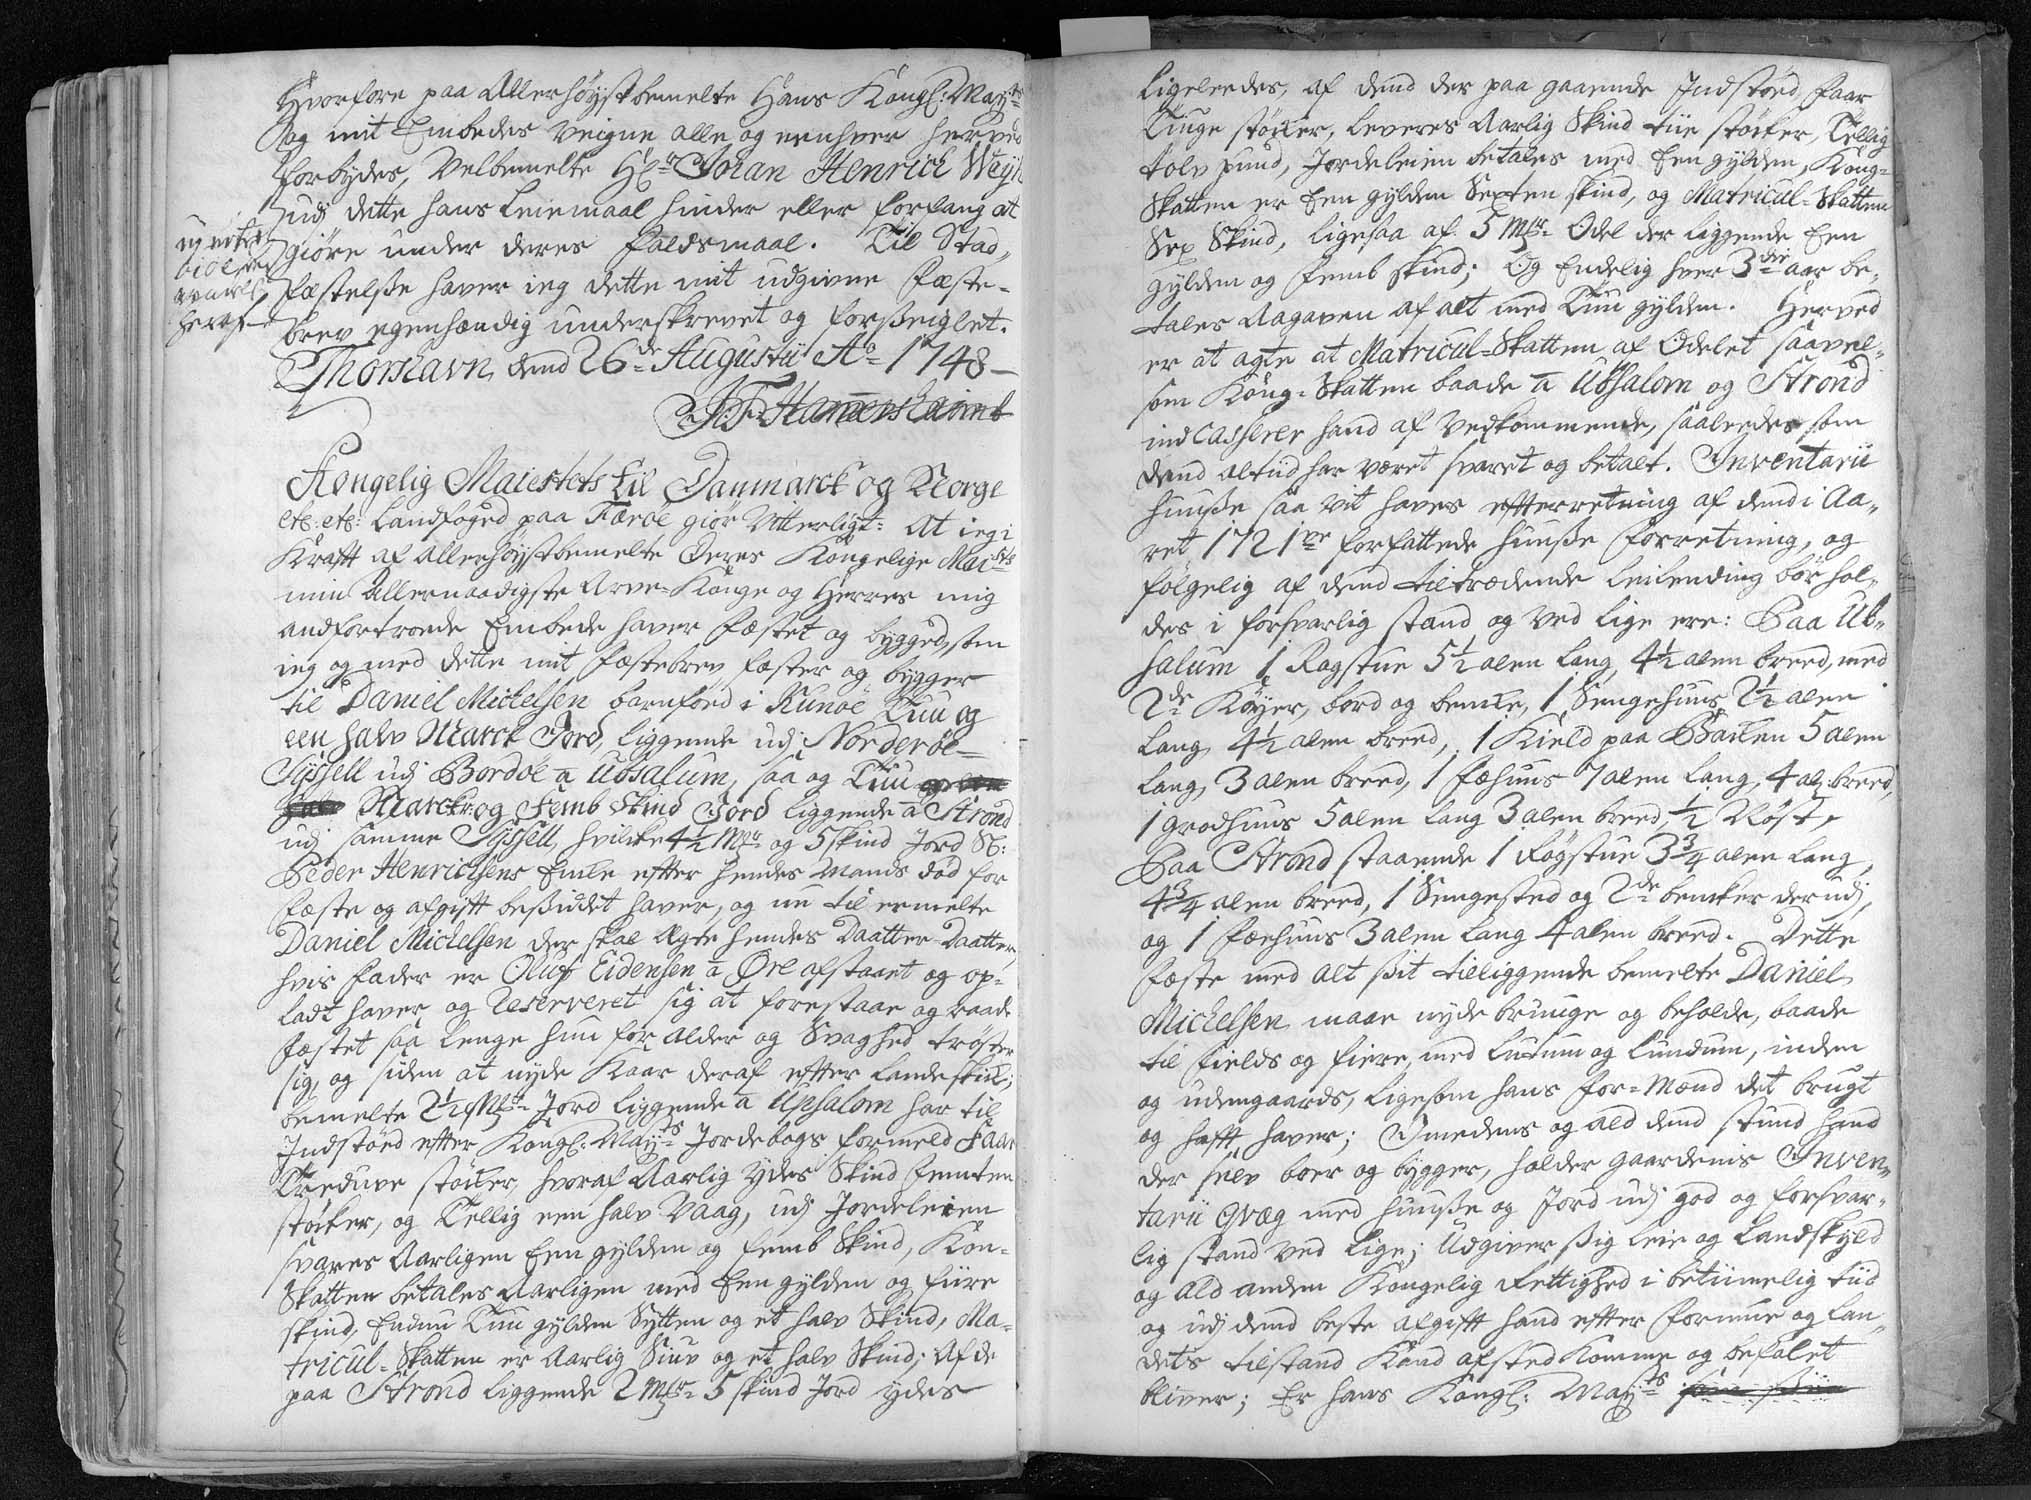 Hvorfore paa Allerhøystbemelte Hans Kongl: Mayts
og mit Embedes veigne alle og eenhver herved
forbydes, Velbemelte Hr Johan Henrich Weyh
udi dette hans Leiemaal hinder eller forfang at
giøre under deres faldsmaal. Til Stad„
fæstelsse haver ieg dette mit udgivne Fæste-
brev egenhændig underskrevet og forsseiglet.
Thorshavn, dend 26de Augustii Ao 1748
Kongelig Maiestets til Danmarck og Norge
etc: etc: Landfoged paa Færøe giør Vitterligt: At ieg i
Krafft af allerhøystbemelte Deres Kongelige Maits
min Allernaadigste Arve-Konge og Herres mig
andfortroede Embede haver fæstet og bygged, som
ieg og med dette mit fæstebrev fæster og bygger
til Daniel Michelsen barnfød i Kunøe Tuu og
een halv Marck Jord, liggende udj Norderøe-
Syssell udj Bordøe a Ubsalum, saa og Tuu
Marckr: og Femb Skind Jord liggende a Strond
udj samme Syssell, hvilcke 4½ Mr og 5 skind Jord Sl:
Peder Henrichsens Encke effter hendes Mands død for
fæste og afgifft bessiddet haver, og nu til ermelte
Daniel Michelsen der skal ægte hendes Daatter-Daatter
hvis Fader er Oluf Eidensen a Øre afstaaet og op-
ladt haver og reserveret sig at forestaae og raade
fæstet saa lenge hun for alder og Svaghed trøster
sig, og siden at nyde Kaar deraf effter landeskick;
bemelte 2½ Mr Jord liggende a Upsalom har til
Indstød effter Kongl: Mayts Jordebogs formeld Faar
Treduve støcker, hvoraf Aarlig ydes Skind femten
støcker, og Tellig een halv Vaag, udj Jordeleien
svares Aarligen Een gylden og femb Skind, Kon-
Skatten betales Aarligen med Een gylden og fiire
skind, Endnu Tuu gylden Sytten og et halv Skind, Ma-
tricul-Skatten er Aarlig Siuv og et halv Skind; Af de
paa Strond liggende 2 Mr 5 skind Jord ydes
ligeleedes, af dend der paa gaaende Indstød, Faar
Tiuge støcker, leveres Aarlig Skind tiie støcker, Tellig
tolv pund, Jordeleien betales med Een gylden, Kong-
Skatten er Een gylden Sexten skind, og Matricul-Skatten
Sex Skind, ligesaa af 5 Mr Odel der liggende Een
gylden og femb skind; Og Endelig hver 3die aar be-
tales Aagaven af alt med Tuu gylden. Herved
er at agte at Matricul-Skatten af Odelet saavel„
som Kong-Skatten baade a Ubsalom og Strond
ind Casserer hand af Vedkommende, saaleedes som
dend altiid har været svaret og betalt. Inventarii
Huusse saa vit haves effterretning af dend i Aa„
ret 1721 forfattede huusse forretning, og
følgelig af dend tiltrædende leilending bør hol„
des i forsvarlig stand og ved lige ere: Paa Ub„
salum 1 Rogstue 5½ alen lang 4½ alen breed, med
2de Køyer, bord og bencke, 1 Sengehuus 2½ alen
lang 4½ alen breed, 1 Kield paa Backen 5 alen
lang, 3 alen breed, 1 fæhuus 7 alen lang, 4 al: breed,
1 Grodhuus 5 alen lang 3 alen breed, ½ Nøst,
Paa Strond staaende 1 Rogstue 3¾ alen lang,
4¾ alen breed, 1 Sengested og 2de bencker derudj,
og 1 fæehuus 3 alen lang 4 alen breed. Dette
fæste med alt ssit tilliggende bemelte Daniel
Michelsen maae nyde bruuge og beholde, baade
til fields og fiere, med lutum og lundum, inden
og udengaards, ligesom hans for-Mænd det brugt
og hafft haver; Imedens og ald dend stund hand
der self boer og bygger, holder gaardenis Inven„
tarii Qvæg med huusse og Jord udj god og forsvar„
lig stand ved lige; Udgiver ssig leie og Landskyld
og ald anden Kongelig Rettighed i betiimelig tiid
og udj dend beste afgifft hand effter formue og Lan„
dets tilstand kand afsted komme og befalet
bliver; Er hans Kongl: Mayts